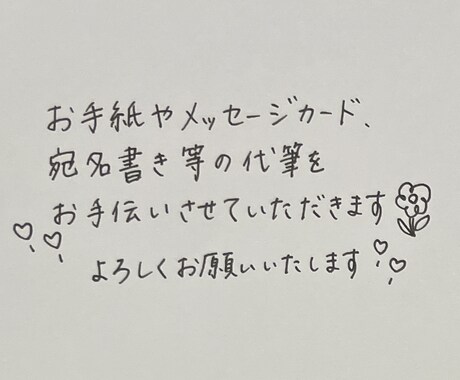 お手紙やメッセージカード、
宛名書き等の代筆を
お手伝いさせていただきます
よろしくお願いいたします